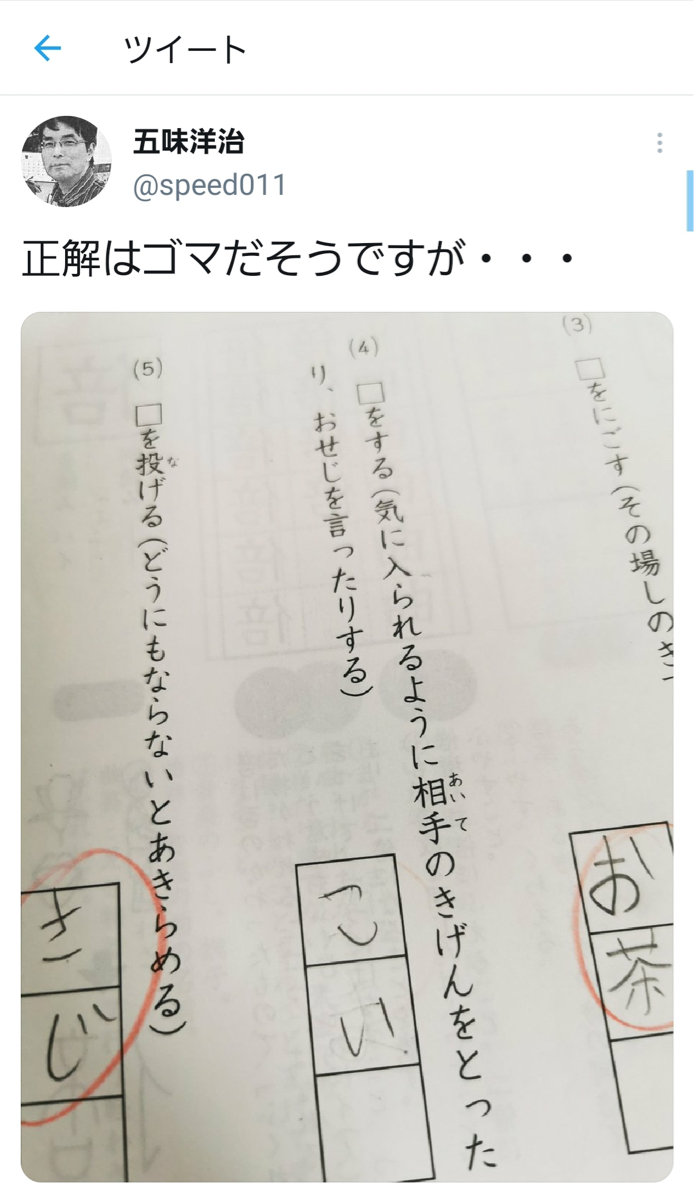 ツイート
五味洋治
@speed011
正解はゴマだそうですが・・・
(3)
□をにごす(その場しのぎ
お茶
(4)
□をする(気に入られるように相手のきげんをとった
あいて
り、おせじを言ったりする)
こい
(5)
□を投げる(どうにもならないとあきらめる)
な
さじ